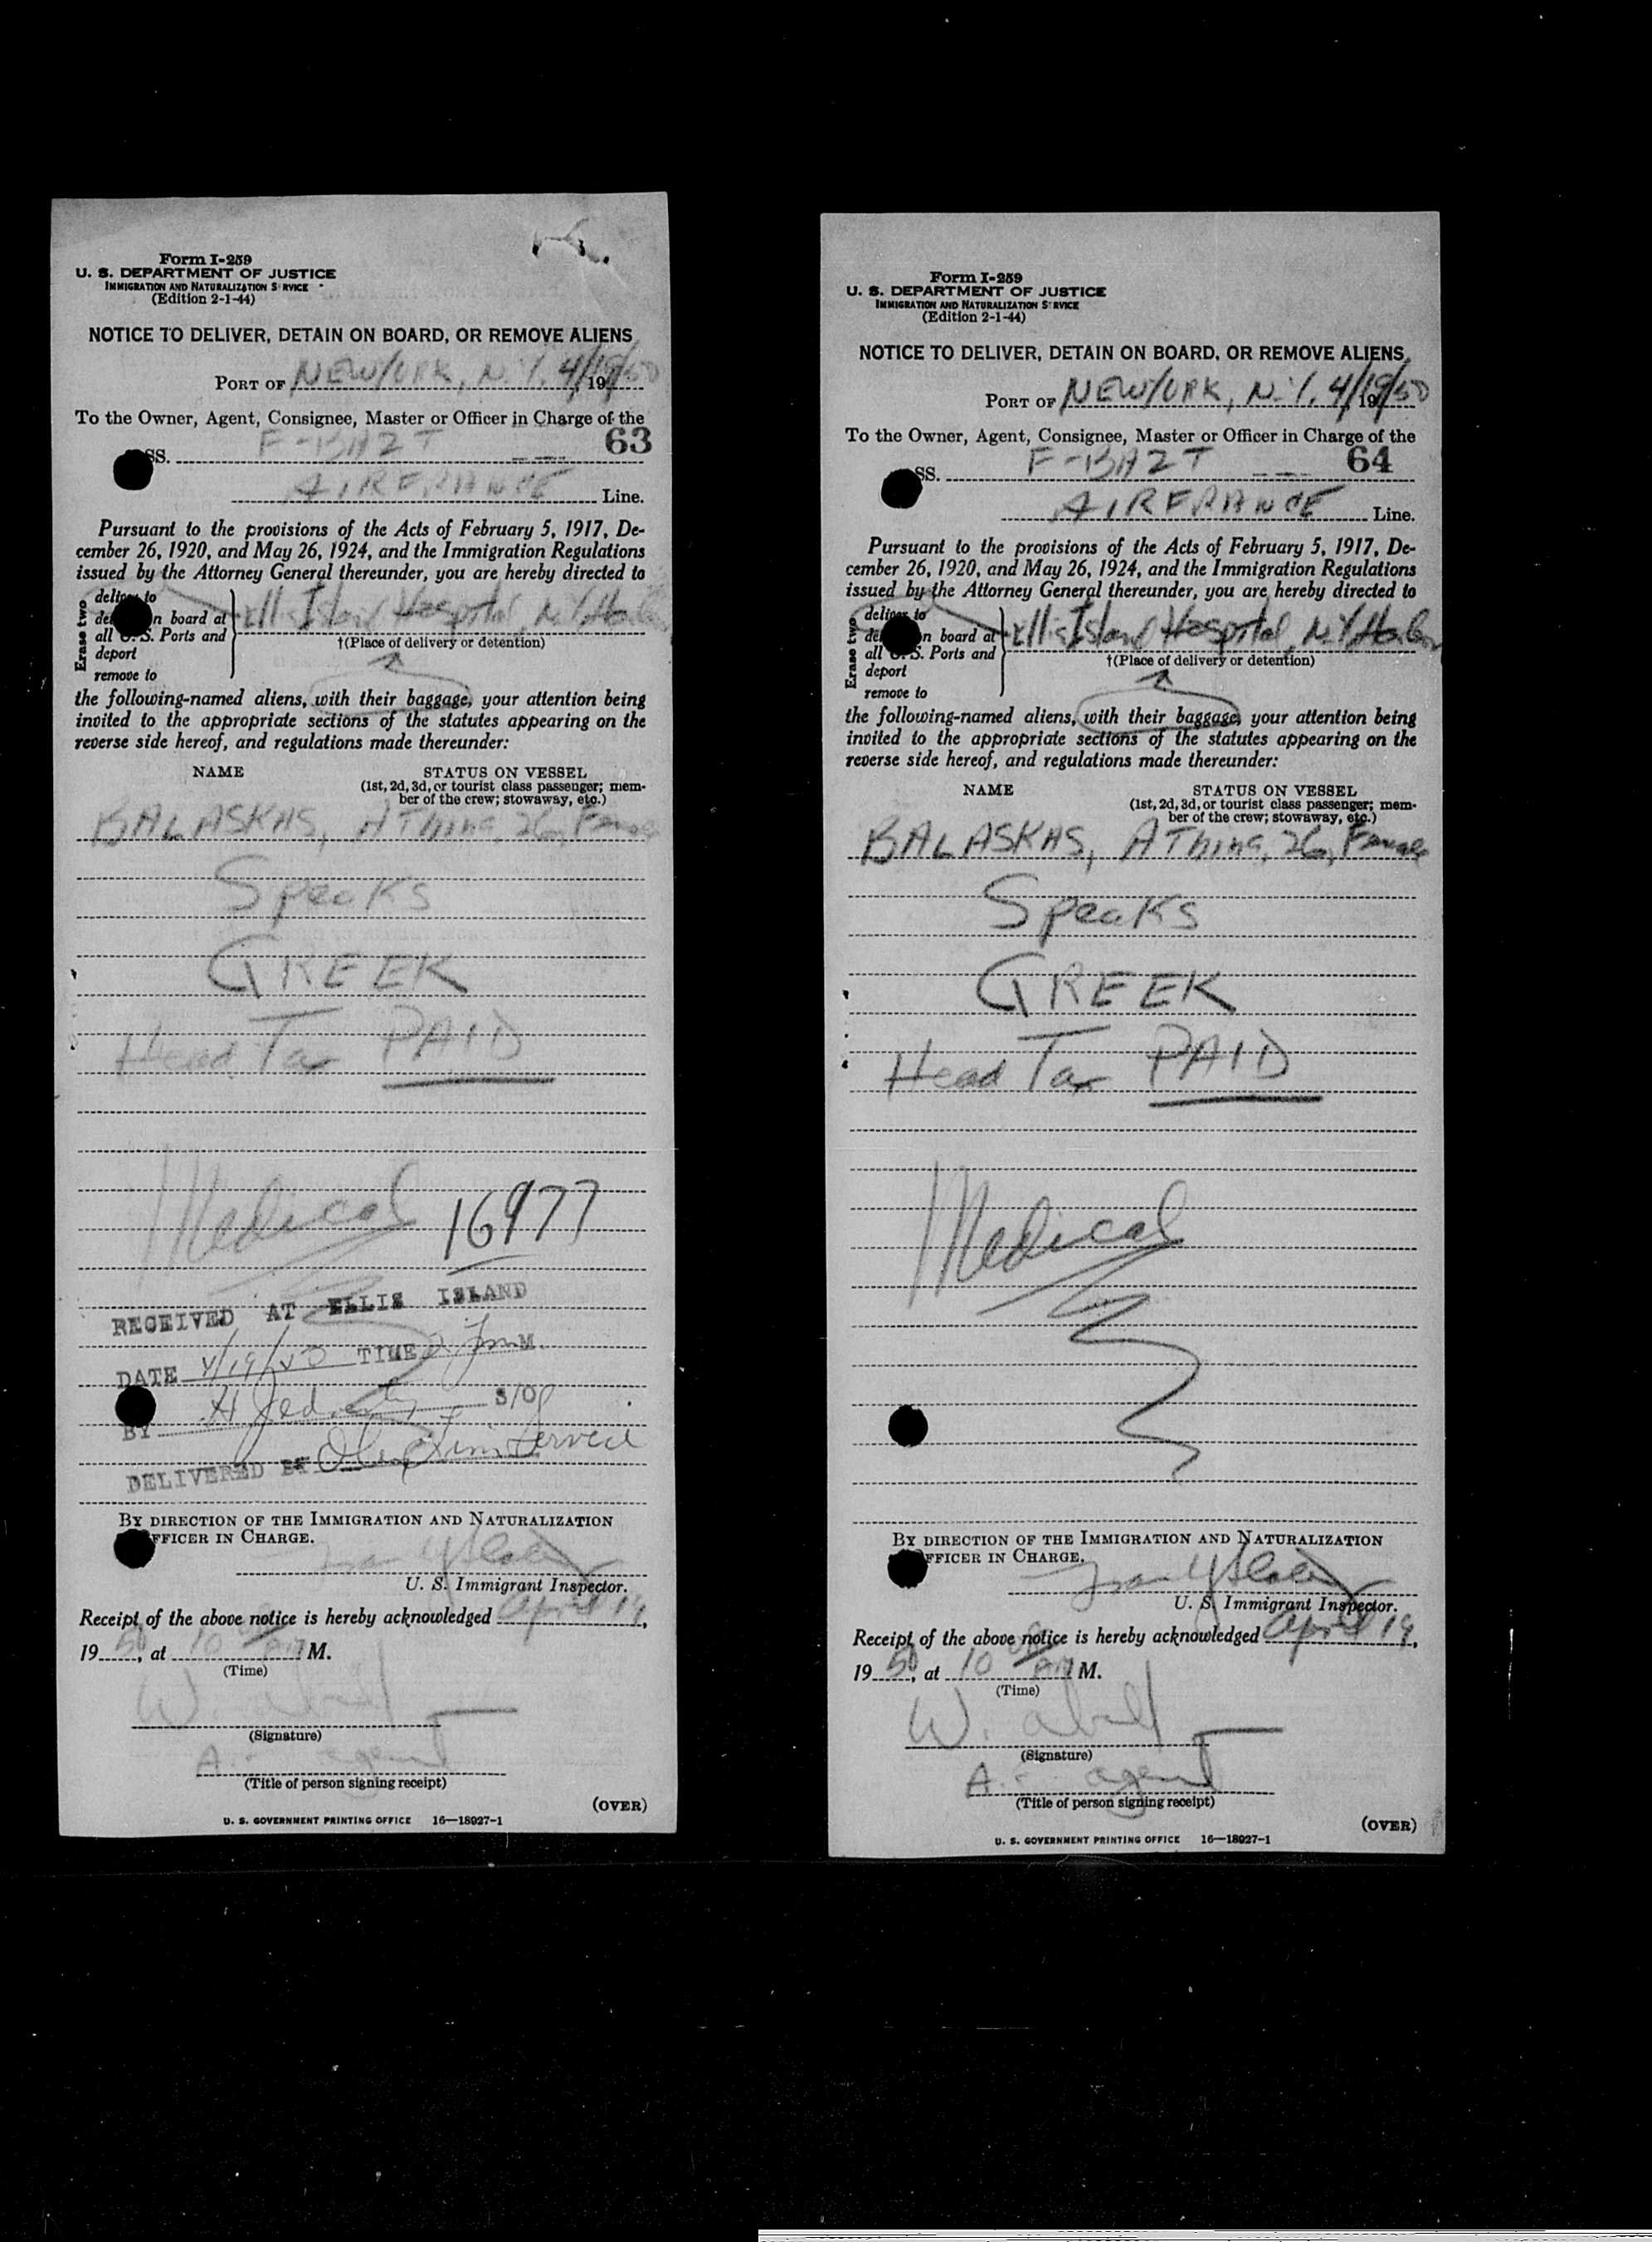 Form I-259
U. S. DEPARTMENT OF JUSTICE
IMMIGRATION AND NATURALIZATION S RVICE
(Edition 2-1-44)
NOTICE TO DELIVER, DETAIN ON BOARD, OR REMOVE ALIENS
PORT OF NEW YORK, N.Y. 4/19/50, 19
To the Owner, Agent, Consignee, Master or Officer in Charge of the
63
SS. F-BAZT
AIRFRANCE Line.
Pursuant to the provisions of the Acts of February 5, 1917, De-
cember 26, 1920, and May 26, 1924, and the Immigration Regulations
issued by the Attorney General thereunder, you are hereby directed to
Erase two
deliver to
n board at
all U. S. Ports and
deport
remove to
Ellis Island Hospital, N.Y.
†(Place of delivery or detention)
the following-named aliens, with their baggage, your attention being
invited to the appropriate sections of the statutes appearing on the
reverse side hereof, and regulations made thereunder:
NAME STATUS ON VESSEL
(1st, 2d, 3d, or tourist class passenger; mem-
ber of the crew; stowaway, etc.)
BALASKAS, AThina, 26, Female
Speaks
GREEK
Head Tax PAID
Medical 16977
RECEIVED AT ELLIS ISLAND
DATE 4/19/50 TIME M.
BY H S/O
DELIVERED BY
BY DIRECTION OF THE IMMIGRATION AND NATURALIZATION
FFICER IN CHARGE.
U. S. Immigrant Inspector.
Receipt of the above notice is hereby acknowledged April 19,
1950, at 10 PM M.
(Time)
W.
(Signature)
agent
(Title of person signing receipt)
(OVER)
U. S. GOVERNMENT PRINTING OFFICE 16—18927-1
Form I-259
U. S. DEPARTMENT OF JUSTICE
IMMIGRATION AND NATURALIZATION S RVICE
(Edition 2-1-44)
NOTICE TO DELIVER, DETAIN ON BOARD, OR REMOVE ALIENS
PORT OF NEW YORK, N.Y. 4/19/50, 19
To the Owner, Agent, Consignee, Master or Officer in Charge of the
64
SS. F-BAZT
AIRFRANCE Line.
Pursuant to the provisions of the Acts of February 5, 1917, De-
cember 26, 1920, and May 26, 1924, and the Immigration Regulations
issued by the Attorney General thereunder, you are hereby directed to
Erase two
deliver to
n board at
all U. S. Ports and
deport
remove to
Ellis Island Hospital, N.Y.
†(Place of delivery or detention)
the following-named aliens, with their baggage, your attention being
invited to the appropriate sections of the statutes appearing on the
reverse side hereof, and regulations made thereunder:
NAME STATUS ON VESSEL
(1st, 2d, 3d, or tourist class passenger; mem-
ber of the crew; stowaway, etc.)
BALASKAS, AThina, 26, Female
Speaks
GREEK
Head Tax PAID
Medical
BY DIRECTION OF THE IMMIGRATION AND NATURALIZATION
FFICER IN CHARGE.
U. S. Immigrant Inspector.
Receipt of the above notice is hereby acknowledged April 19,
1950, at 10 PM M.
(Time)
W.
(Signature)
agent
(Title of person signing receipt)
(OVER)
U. S. GOVERNMENT PRINTING OFFICE 16—18927-1